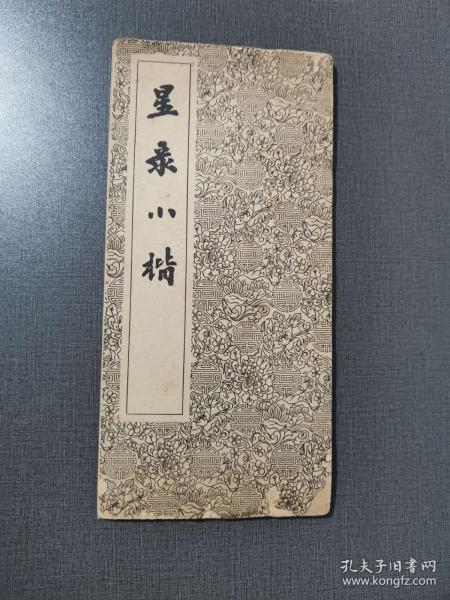 星录小楷
孔夫子旧书网
www.kongfz.com